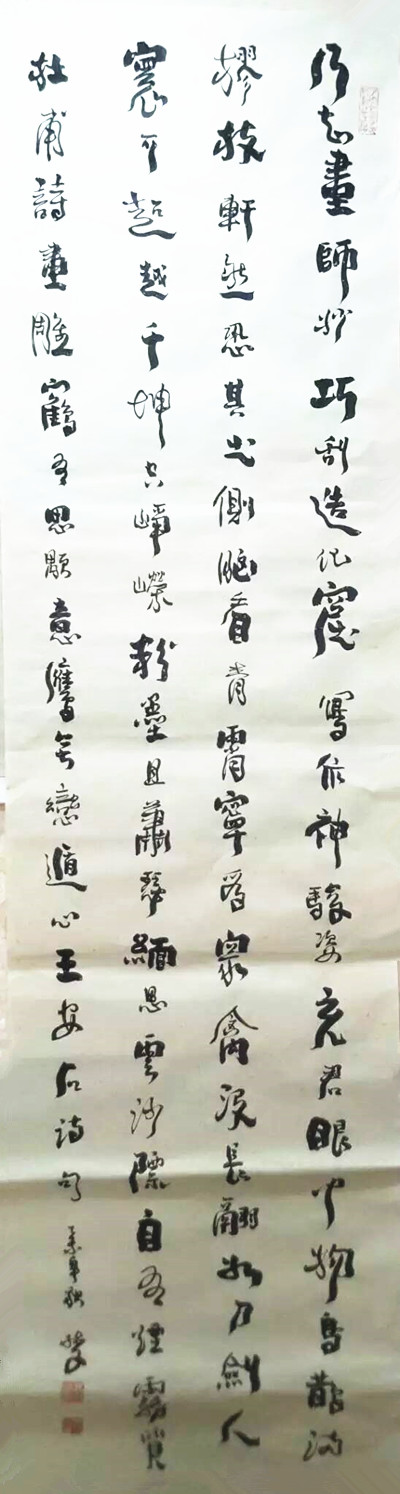 乃知畫師妙巧刮造化窟寫作神駿姿充君眼中物烏鵲滿
樛枝軒然恐其出側腦看青霄寧爲衆禽没長翮如刀劍人
寰可超越千坤空崢嶸粉墨且蕭瑟緬思雲沙際自有煙霧質
杜甫詩畫雕鶴有思顛意鷹無戀遁心王安石詩句